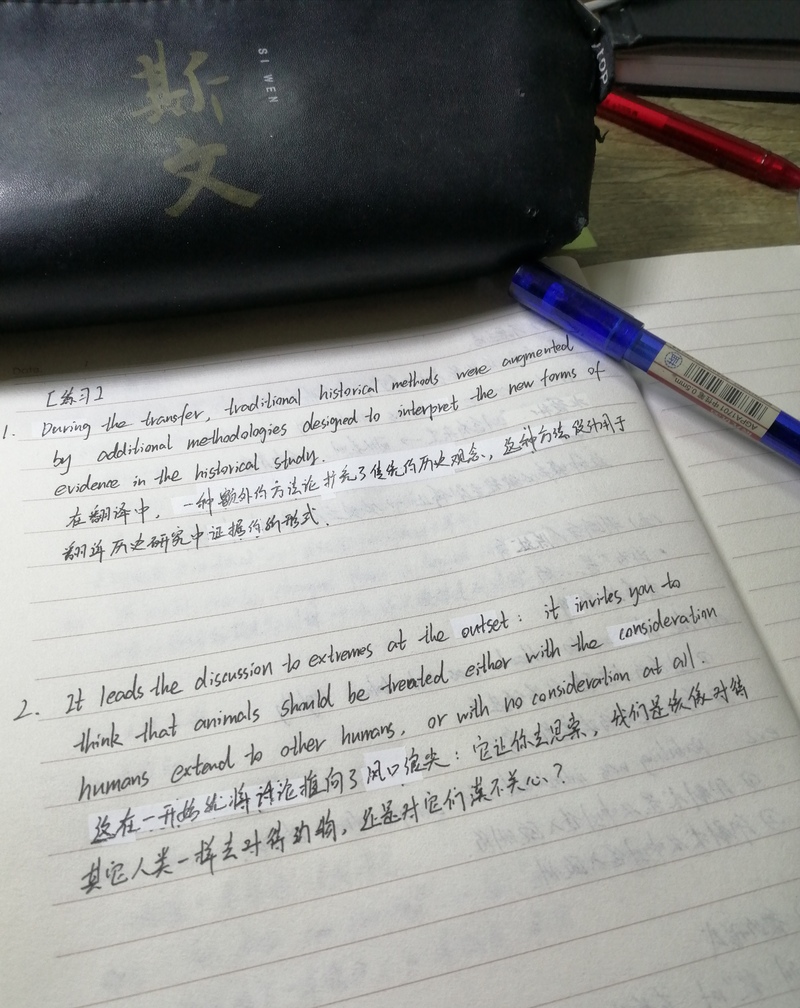 斯文
SI WEN
TOP
AGPA1701 中性笔 0.5mm
[练习]
1. During the transfer, traditional historical methods were augmented
by additional methodologies designed to interpret the new forms of
evidence in the historical study.
在翻译中，一种额外的方法论扩充了传统的历史观念，这种方法设计用于
翻译历史研究中证据的新形式.
2. It leads the discussion to extremes at the outset: it invites you to
think that animals should be treated either with the consideration
humans extend to other humans, or with no consideration at all.
这在一开始就将讨论推向了风口浪尖：它让你去思索，我们是该像对待
其它人类一样去对待动物，还是对它们漠不关心？